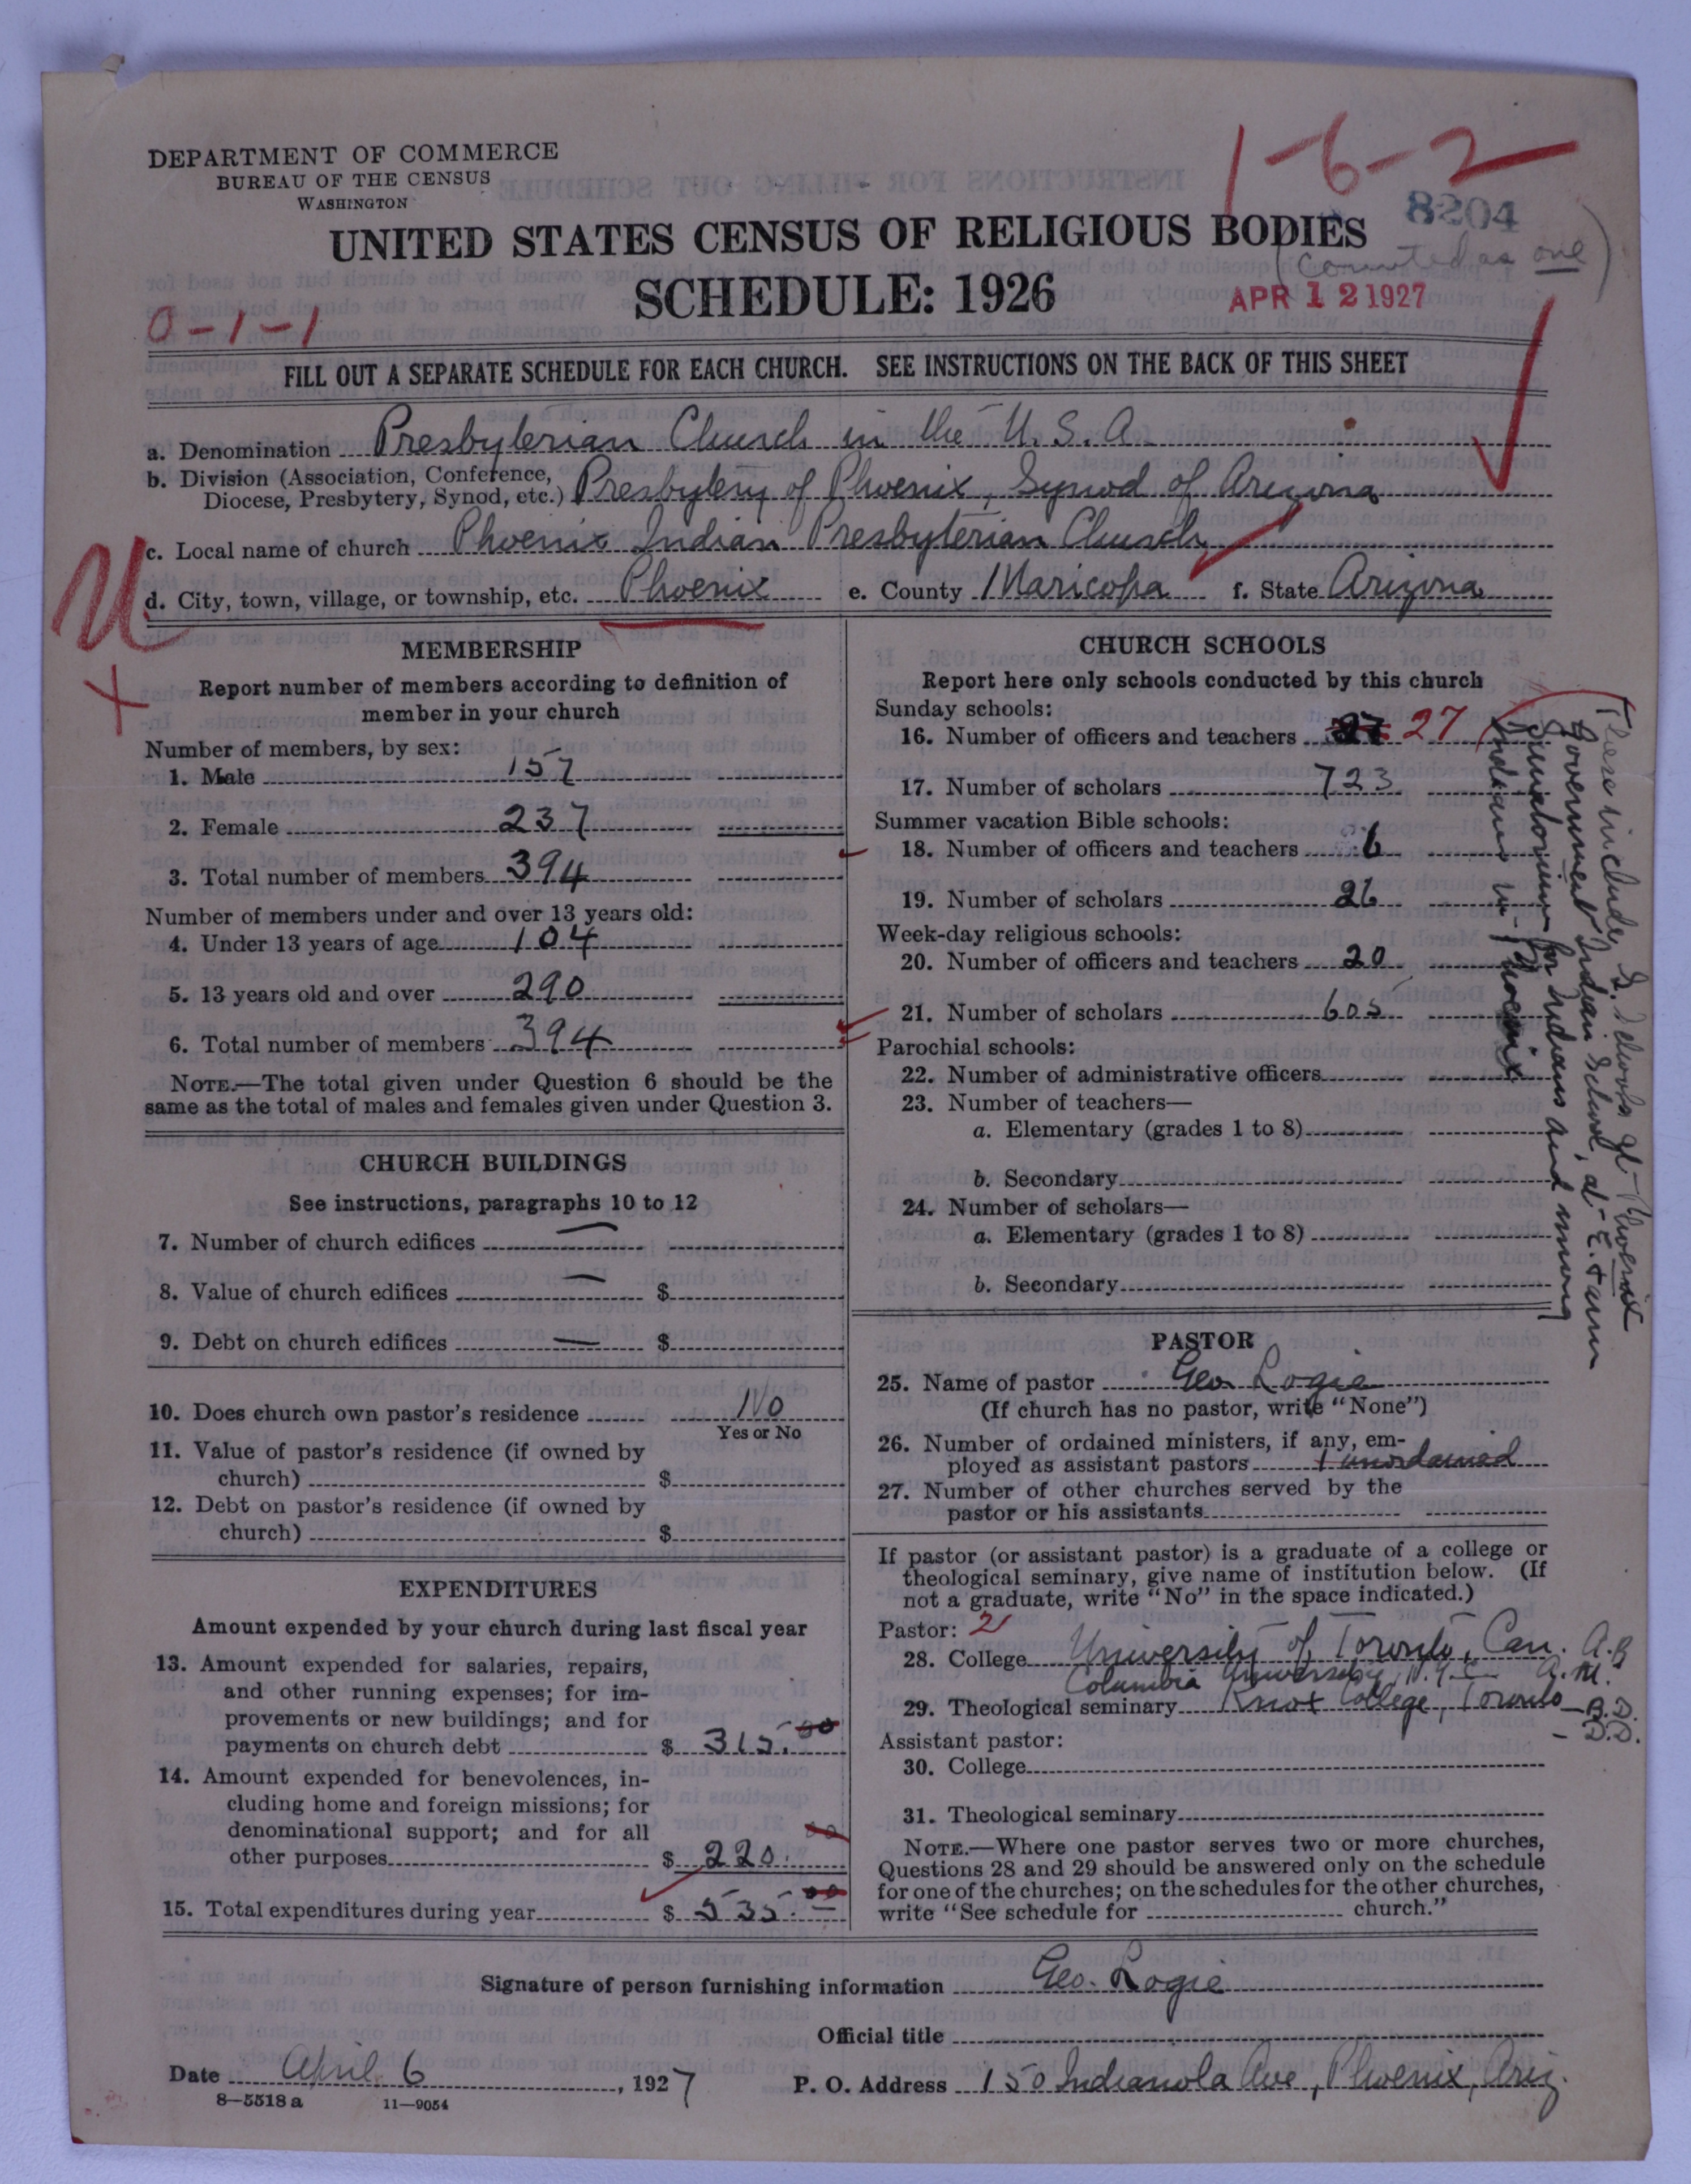 DEPARTMENT OF COMMERCE
BUREAU OF THE CENSUS
WASHINGTON
1-6-2
8204
UNITED STATES CENSUS OF RELIGIOUS BODIES
(Counted as one)
SCHEDULE: 1926
APR 12 1927
0-1-1
FILL OUT A SEPARATE SCHEDULE FOR EACH CHURCH. SEE INSTRUCTIONS ON THE BACK OF THIS SHEET
a. Denomination Presbyterian Church in the U.S.A.
b. Division (Association, Conference,
Diocese, Presbytery, Synod, etc.) Presbytery of Phoenix, Synod of Arizona
c. Local name of church Phoenix Indian Presbyterian Church
d. City, town, village, or township, etc. Phoenix e. County Maricopa f. State Arizona
U
X
MEMBERSHIP
Report number of members according to definition of
member in your church
Number of members, by sex:
1. Male 157
2. Female 237
3. Total number of members 394
Number of members under and over 13 years old:
4. Under 13 years of age 104
5. 13 years old and over 290
6. Total number of members 394
NOTE.—The total given under Question 6 should be the
same as the total of males and females given under Question 3.
CHURCH BUILDINGS
See instructions, paragraphs 10 to 12
7. Number of church edifices —
8. Value of church edifices — $
9. Debt on church edifices — $
10. Does church own pastor's residence No
Yes or No
11. Value of pastor's residence (if owned by
church) $
12. Debt on pastor's residence (if owned by
church) $
EXPENDITURES
Amount expended by your church during last fiscal year
13. Amount expended for salaries, repairs,
and other running expenses; for im-
provements or new buildings; and for
payments on church debt $ 315.00
14. Amount expended for benevolences, in-
cluding home and foreign missions; for
denominational support; and for all
other purposes $ 220.00
15. Total expenditures during year $ 535.00
CHURCH SCHOOLS
Report here only schools conducted by this church
Sunday schools:
16. Number of officers and teachers 27 27
17. Number of scholars 723
Summer vacation Bible schools:
18. Number of officers and teachers 6
19. Number of scholars 26
Week-day religious schools:
20. Number of officers and teachers 20
21. Number of scholars 605
Parochial schools:
22. Number of administrative officers
23. Number of teachers—
a. Elementary (grades 1 to 8)
b. Secondary
24. Number of scholars—
a. Elementary (grades 1 to 8)
b. Secondary
These include S. Schools at Phoenix
Government Indian School, at E. Farm
Sanatorium for Indians and among
Indians in Phoenix
PASTOR
25. Name of pastor Geo. Logie
(If church has no pastor, write "None")
26. Number of ordained ministers, if any, em-
ployed as assistant pastors 1 unordained
27. Number of other churches served by the
pastor or his assistants
If pastor (or assistant pastor) is a graduate of a college or
theological seminary, give name of institution below. (If
not a graduate, write "No" in the space indicated.)
Pastor: 21
28. College University of Toronto, Can. A.B.
Columbia University, N.Y.C. A.M.
29. Theological seminary Knox College, Toronto — B.D.
— D.D.
Assistant pastor:
30. College
31. Theological seminary
NOTE.—Where one pastor serves two or more churches,
Questions 28 and 29 should be answered only on the schedule
for one of the churches; on the schedules for the other churches,
write "See schedule for church."
Signature of person furnishing information Geo. Logie
Official title
Date April 6, 1927 P. O. Address 150 Indianola Ave, Phoenix, Ariz.
8—5518 a 11—9054